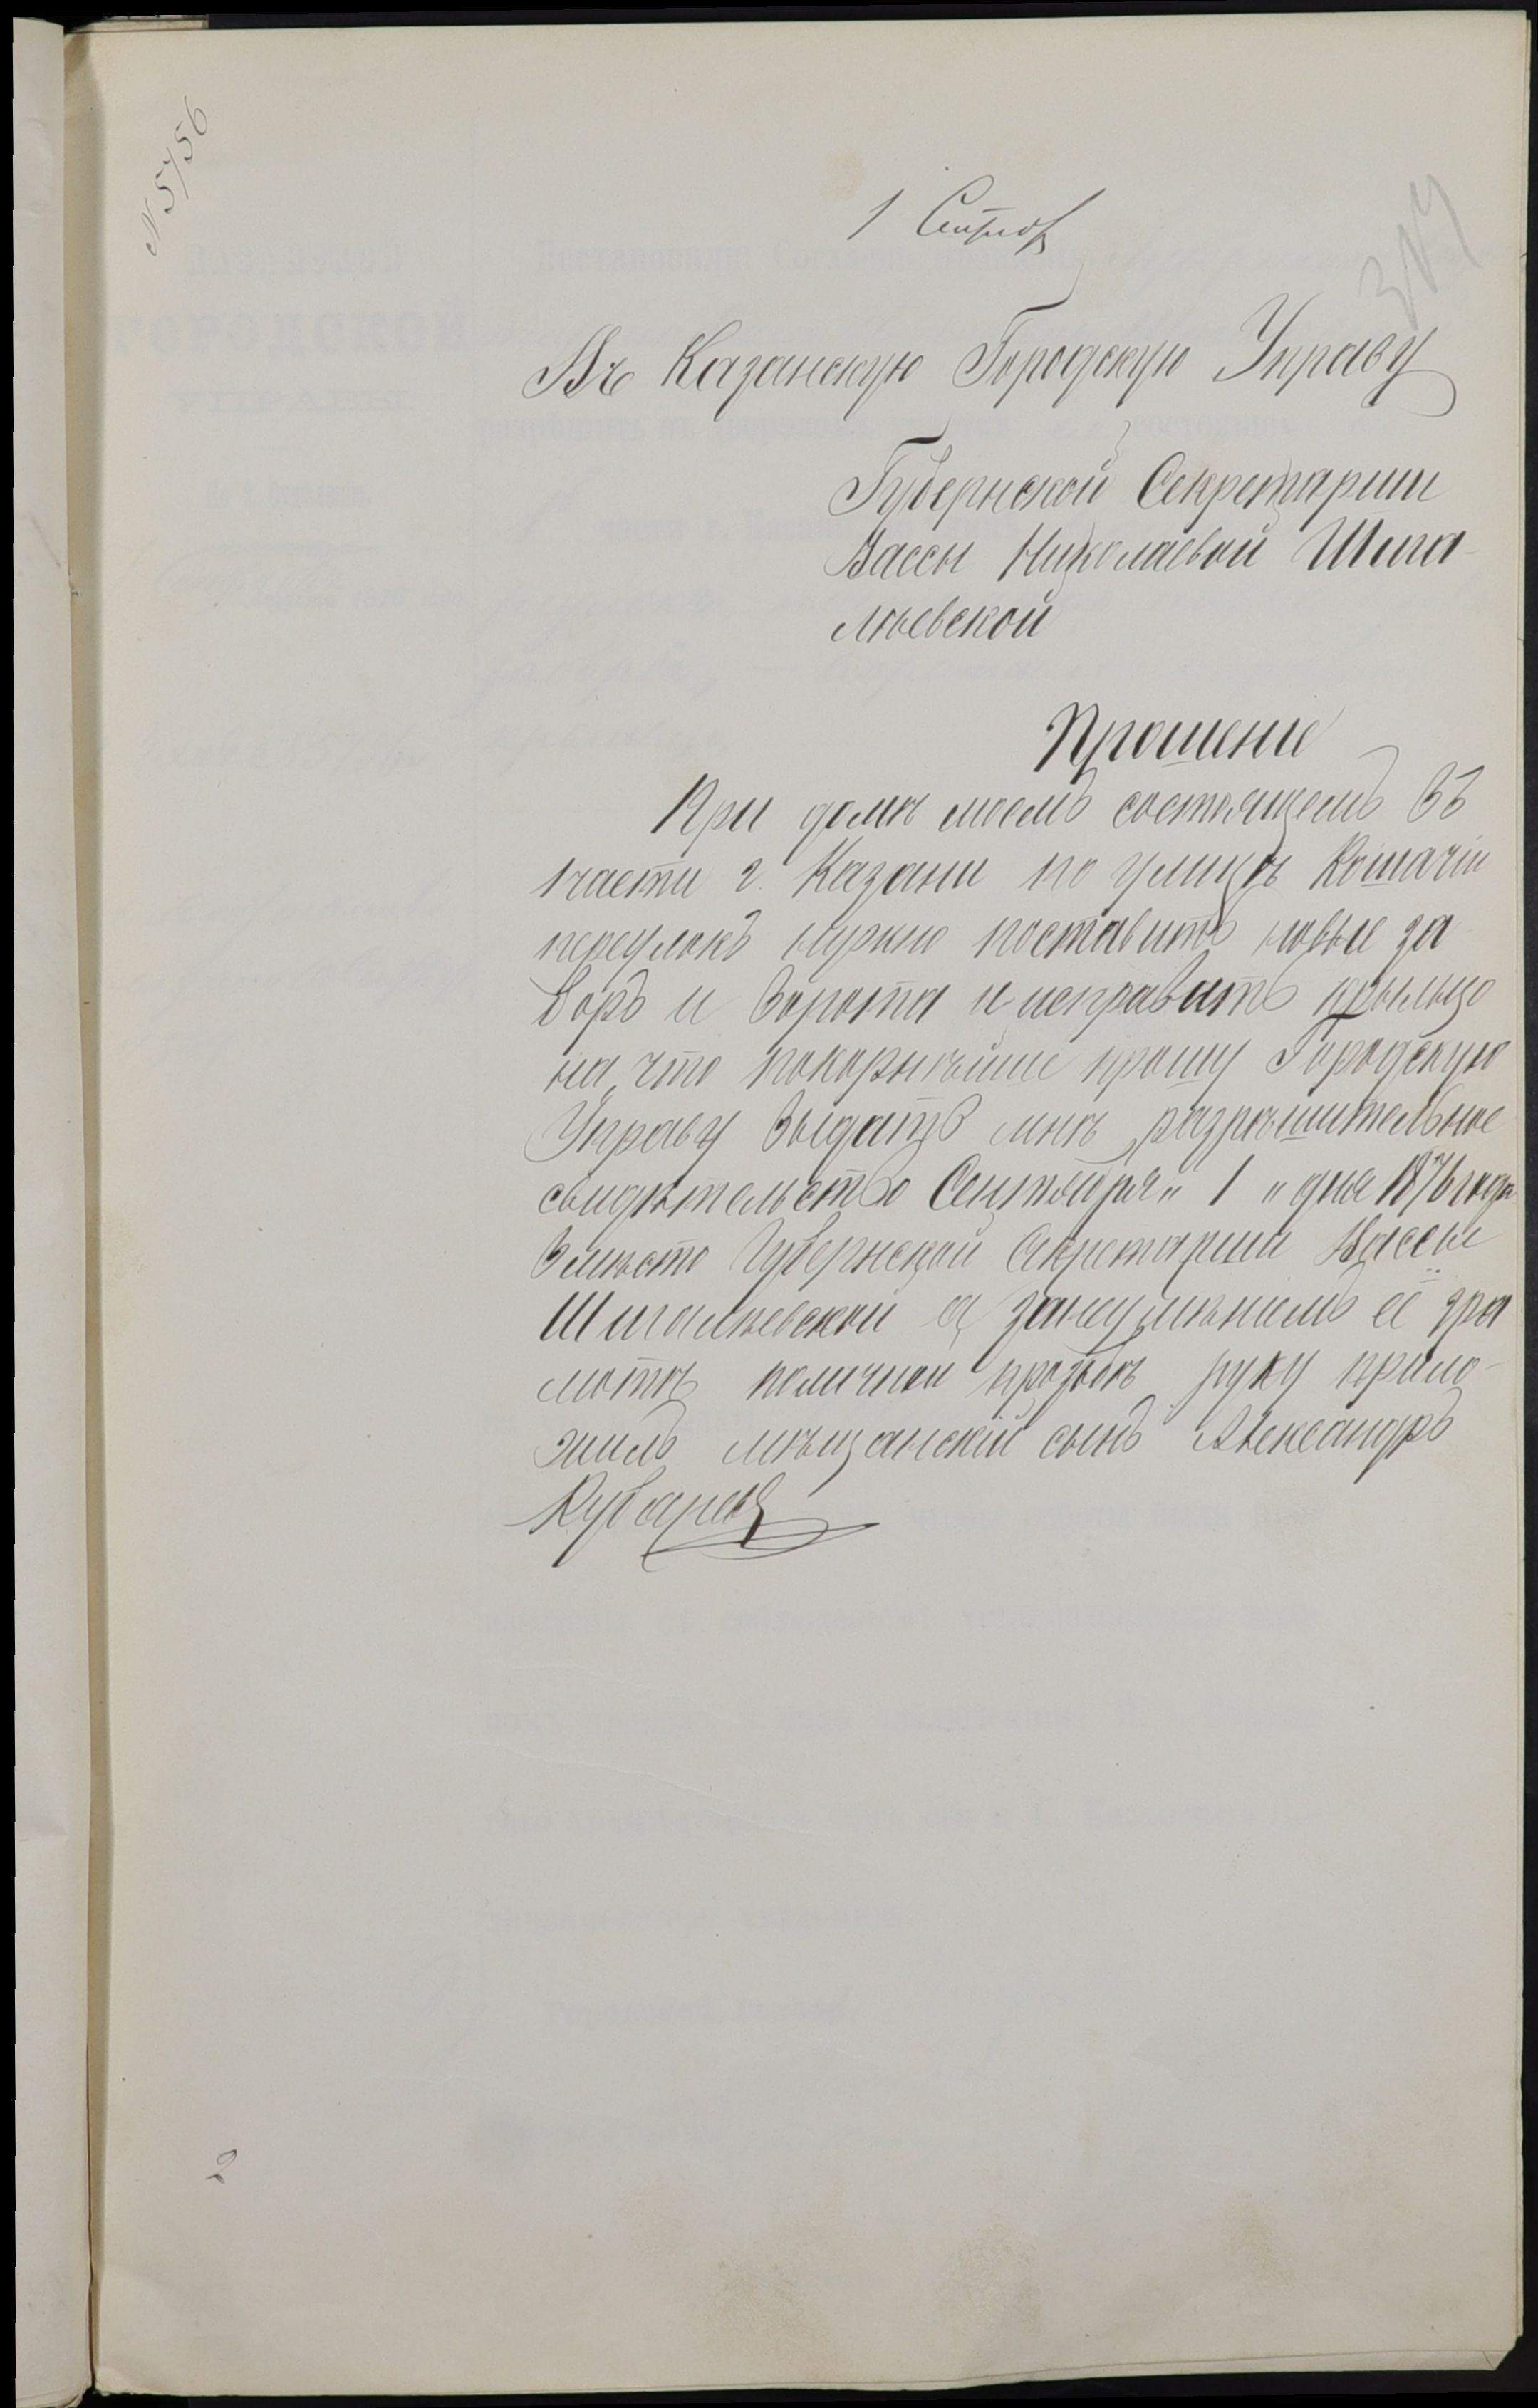 N 5756
1 Сентяб
317
Въ Казанскую Городскую Управу
Губернской Секретарши
Вассы Николаевой Шига-
лѣевской
Прошеніе
При домѣ моемъ состоящемъ въ
1 части г. Казани по улицѣ Кошачій
переулокъ нужно поставить новые за
боръ и ворота и исправить крыльцо
на что покорнѣйше прошу Городскую
Управу выдать мнѣ разрѣшительное
свидѣтельство Сентября „ 1 „ дня 1876 года
Вмѣсто Губернской Секретарши Вассы
Шигалѣевской за неумѣніемъ её гра
мотѣ по личной прозьбѣ руку прило-
жилъ мѣщанскій сынъ Александръ
2